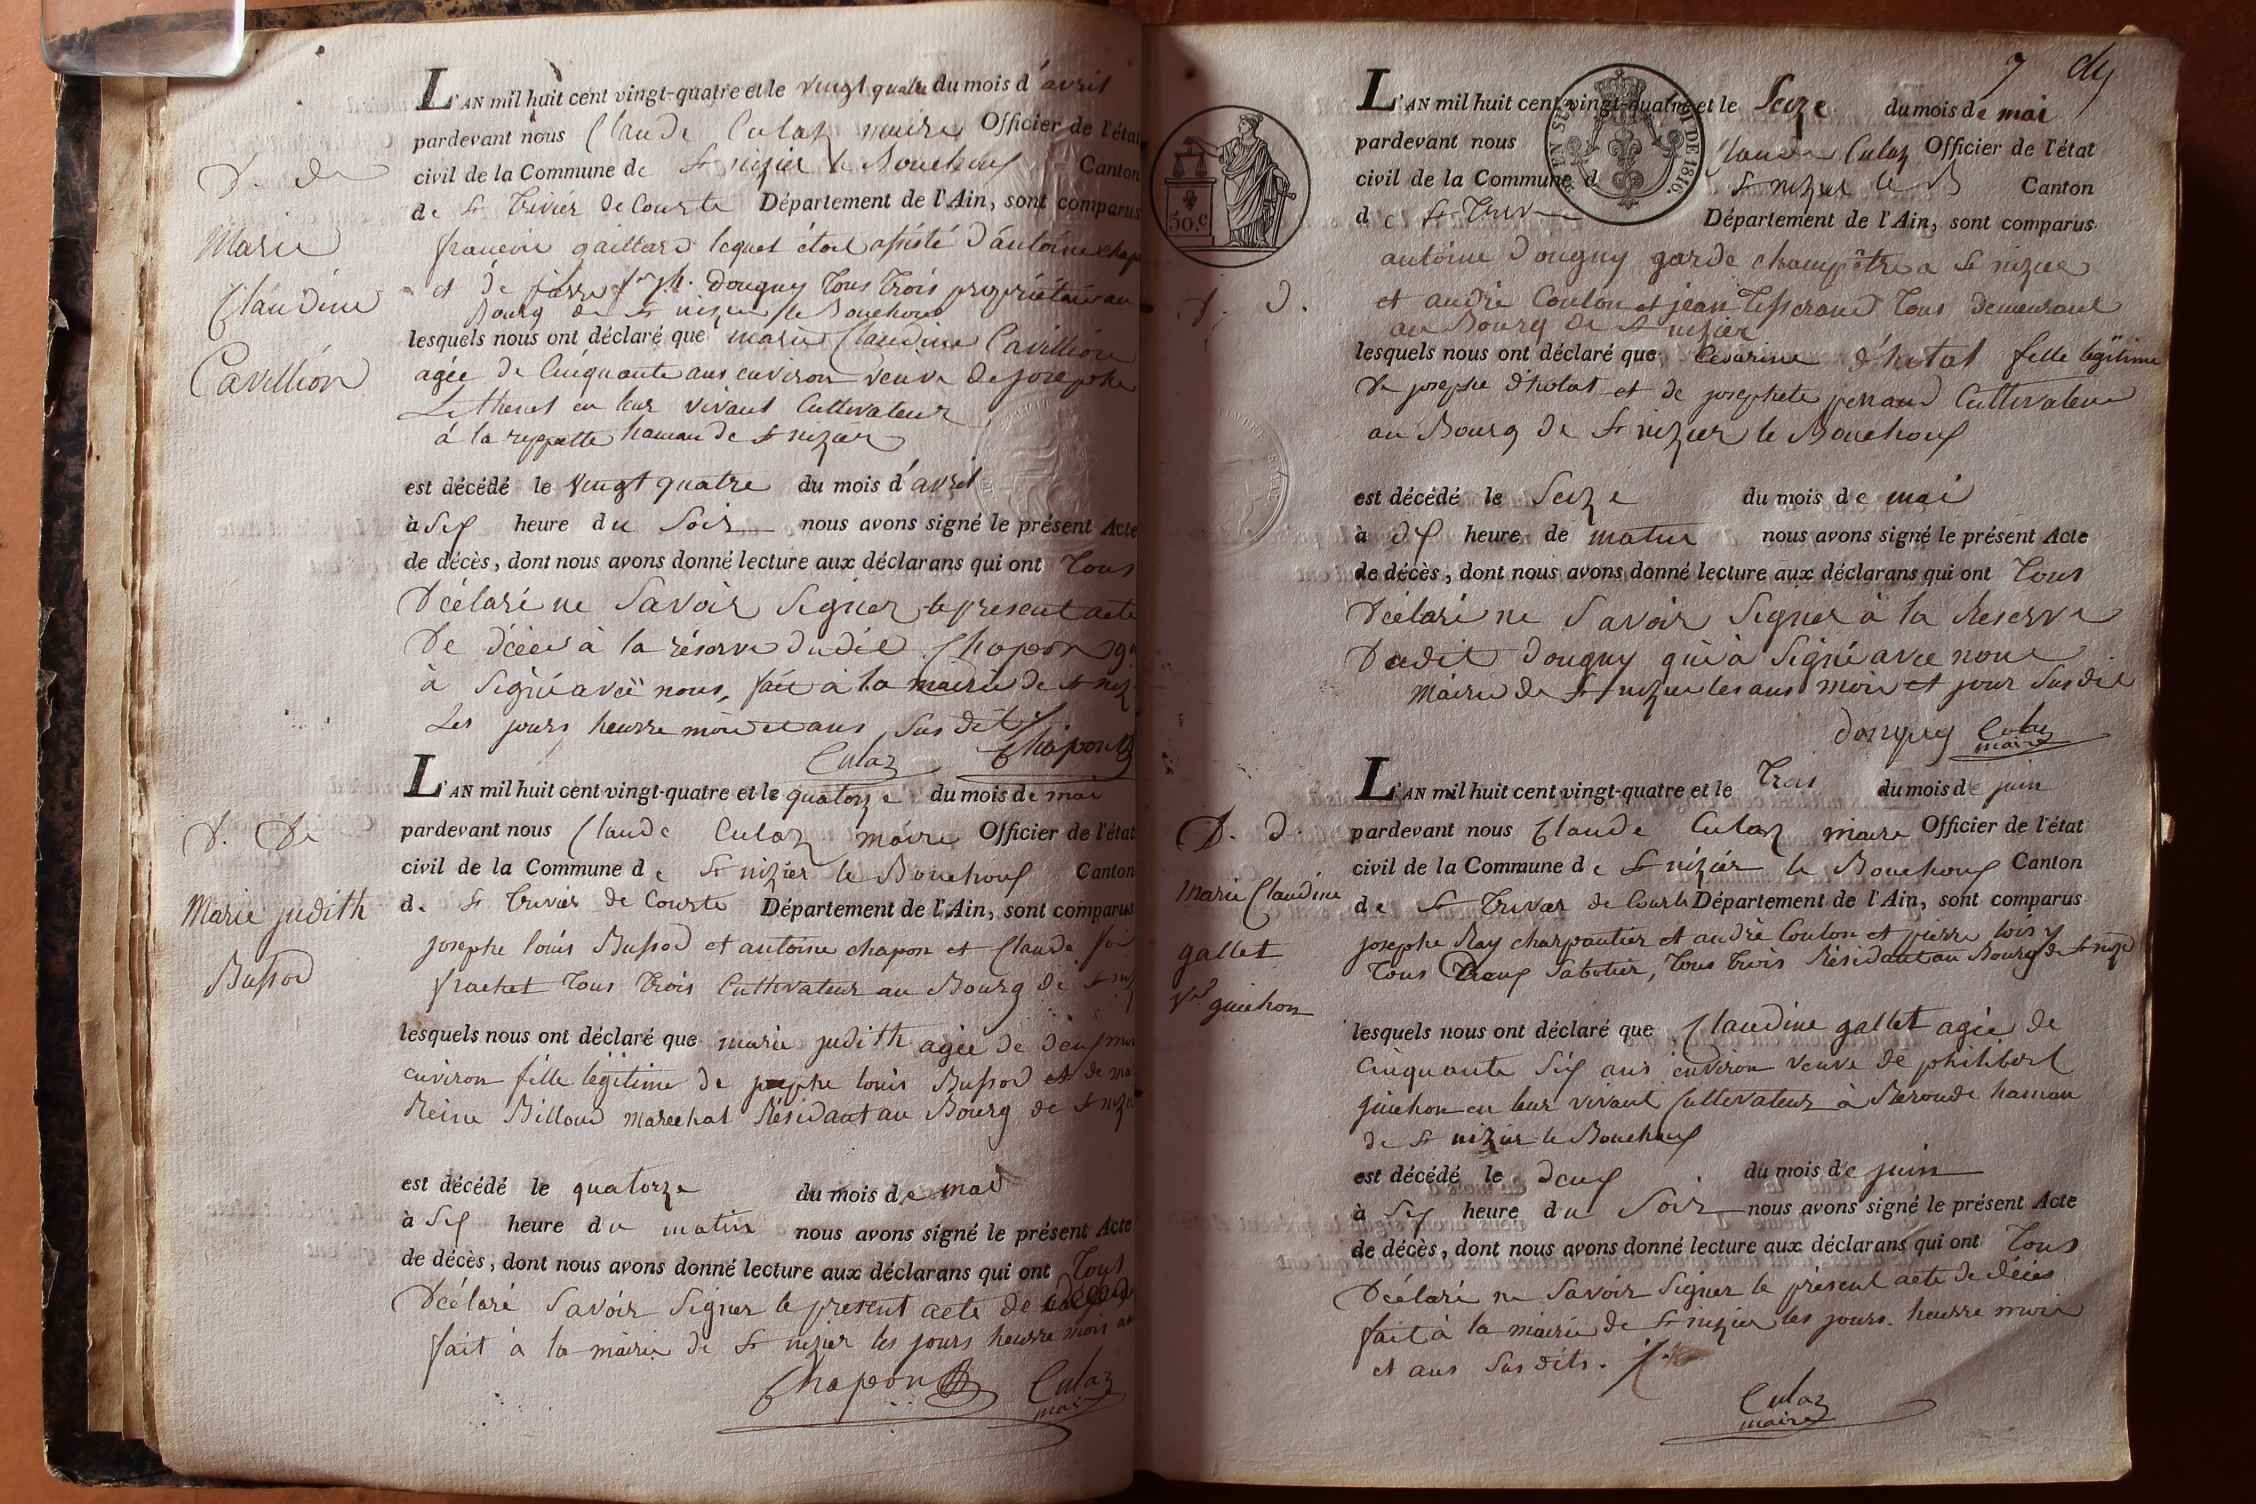 L'AN mil huit cent vingt-quatre et le vingt quatre du mois d'avril
pardevant nous Claude Culaz maire Officier de l'état
civil de la Commune de St nizier le Bouchoux Canton
de St Trivier de Courte Département de l'Ain, sont comparus
françoi gaillard lequel étoit assisté d'antoine chap
et de pierre jph. Donguy tous trois propriétaire au
Bourg de St nizier le Bouchoux
lesquels nous ont déclaré que marie Claudine Cavillion
agée de Cinquante ans environ veuve de josephe
en leur vivant Cultivateur
à la hameau de St nizier
est décédé le vingt quatre du mois d'avril
à Six heure du Soir nous avons signé le présent Acte
de décès, dont nous avons donné lecture aux déclarans qui ont Tous
Déclaré ne Savoir Signer le present acte
De décès à la réserve dudit Chapon qui
à Signé avec nous, fait à la mairie de St niz
Les jours heurre moi et ans Sus dit
Culaz Chapon
D. de
Marie
Claudine
Cavillion
L'AN mil huit cent vingt-quatre et le quatorze du mois de mai
pardevant nous Claude Culaz maire Officier de l'état
civil de la Commune de St nizier le Bouchoux Canton
d. St Trivier de Courte Département de l'Ain, sont comparus
josephe louis Bussod et antoine chapon et Claude
frachet Tous Trois Cultivateur au Bourg de St niz
lesquels nous ont déclaré que marie judith agée de deux moi
environ fille légitime de josephe louis Bussod et de ma
Reine Billoud marechal Résidant au Bourg de St nizi
est décédé le quatorze du mois de mai
à Six heure du matin nous avons signé le présent Acte
de décès, dont nous avons donné lecture aux déclarans qui ont Tous
Déclaré Savoir Signer le present acte de
fait à la mairie de St nizier les jours heurre mois an
Chapon Culaz
maire
D. De
Marie judith
Bussod
7
EN SUS
LOI DE 1816.
50.c
L'AN mil huit cent vingt-quatre et le Seize du mois de mai
pardevant nous Claude Culaz Officier de l'état
civil de la Commune d St nizier le B Canton
de St Triv Département de l'Ain, sont comparus
antoine Donguy garde champêtre a St nizier
et andré Coulon et jean Tisserand Tous demeurant
au Bourg de St nizier
lesquels nous ont déclaré que Cesarine d'hotal fille legitime
De josephe d'hotal et de josephete perraud Cultivateur
au Bourg de St nizier le Bouchoux
est décédé le Seize du mois de mai
à dix heure de matin nous avons signé le présent Acte
de décès, dont nous avons donné lecture aux déclarans qui ont Tous
Déclaré ne Savoir Signer à la Reserve
Dudit Donguy qui à Signé avec nous
Maire de St nizier les ans moi et jour Susdit
donguy Culaz
maire
D. D.
L'AN mil huit cent vingt-quatre et le Trois du mois de juin
pardevant nous Claude Culaz maire Officier de l'état
civil de la Commune de St nizier le Bouchoux Canton
de St Trivier de Courte Département de l'Ain, sont comparus
josephe Ray charpantier et andré Coulon et pierre
Tous Deux Sabotier, Tous trois Résidant au Bourg de St nizi
lesquels nous ont déclaré que Claudine gallet agée de
Cinquante Six ans environ veuve de philibert
guichon en leur vivant Cultivateur à hamau
de St nizier le Bouchoux
est décédé le deux du mois de juin
à Six heure du Soir nous avons signé le présent Acte
de décès, dont nous avons donné lecture aux déclarans qui ont Tous
Déclaré ne Savoir Signer le présent acte de décès
fait à la mairie de St nizier les jours. heurre mois
et ans Sus dits.
Culaz
maire
D. D.
Marie Claudine
gallet
Ve guichon